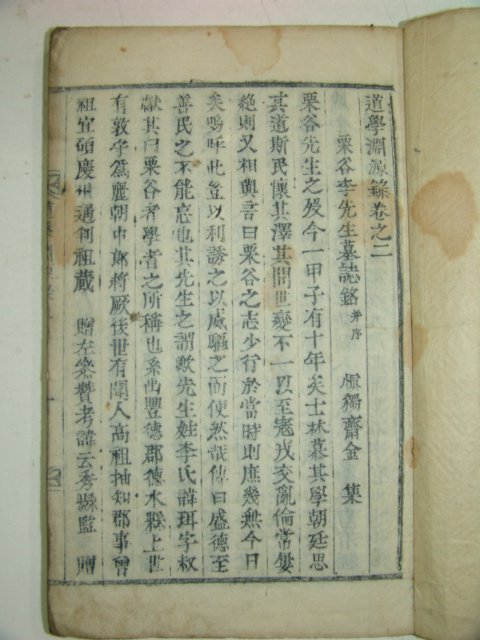 道學淵源錄卷之二
栗谷李先生墓誌銘 并序 愼獨齋金 集
栗谷先生之歿今一甲子有十年矣士林慕其學朝廷思
其道斯民懷其澤其間世變不一以至寇戎交亂倫常屢
絶則又相與言曰栗谷之志少行於當時則庶幾無今日
矣嗚呼此豈以利誘之以威驅之而使然哉傳曰盛德至
善民之不能忘也其先生之謂歟先生姓李氏諱珥字叔
獻其曰栗谷者學者之所稱也系出豐德郡德水縣上世
有敦守爲麗朝中郞將厥後世有聞人高祖抽知郡事曾
祖宜碩慶州通判祖蕆 贈左參贊考諱元秀縣監 贈